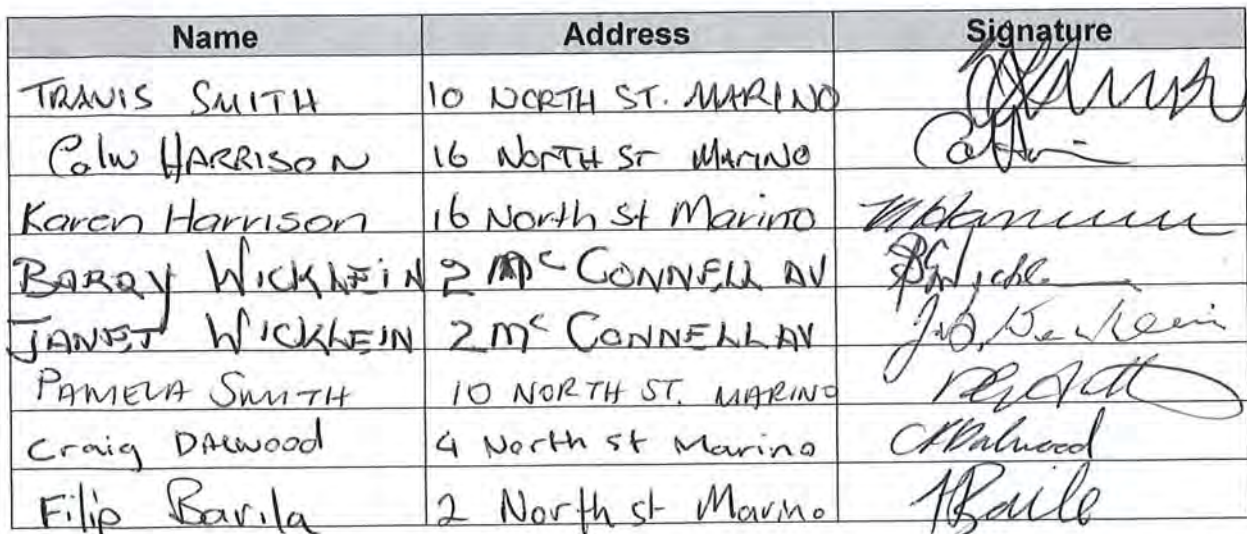 Name Address Signature
TRAVIS SMITH 10 NORTH ST. MARINO
HARRISON 16 NORTH ST MARINO
Karen Harrison 16 North St Marino
BARRY WICKLEIN 2 Mc CONNELL AV
JANET WICKLEIN 2 Mc CONNELL AV
PAMELA SMITH 10 NORTH ST. MARINO
Craig DALWOOD 4 North st Marino CADalwood
Filip Barila 2 North st Marino